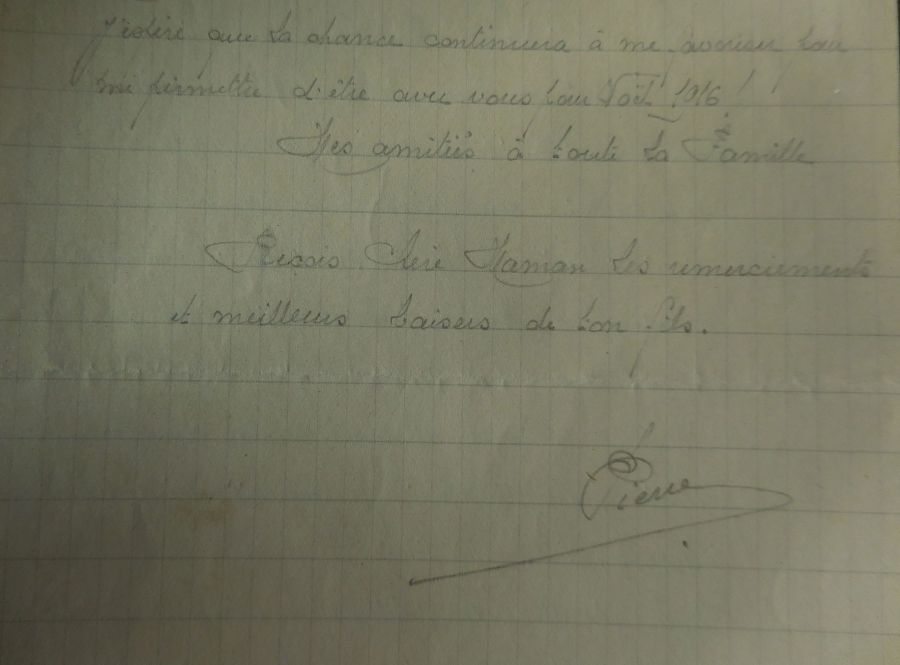 J'espère que la chance continuera à me favoriser pour
me permettre d'être avec vous pour Noël 1916 !
Mes amitiés à toute la Famille
Reçois Chère Maman les remerciements
et meilleurs baisers de ton fils.
Pierre